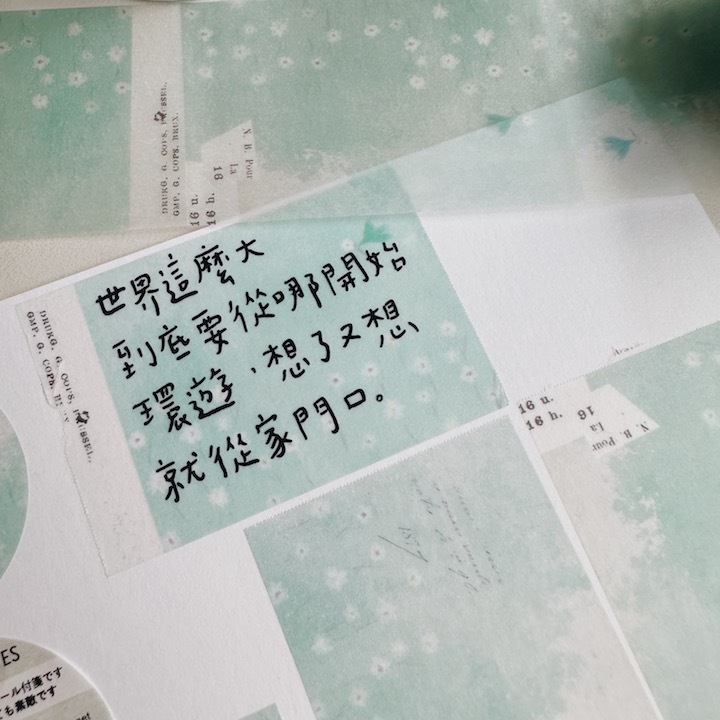 DRUKG. G. COPS, BRUSSEL.
GMP. G. COPS. BRUX.
N. B. Pour
La
16
16 u.
16 h.
世界這麼大
到底要從哪開始
環遊，想了又想
就從家門口。
DRUKG. G. COPS, BRUSSEL.
GMP. G. COPS. BRUX
16 u.
16 h.
16
N. B. Pour
La
ES
ール付箋です
も素敵です